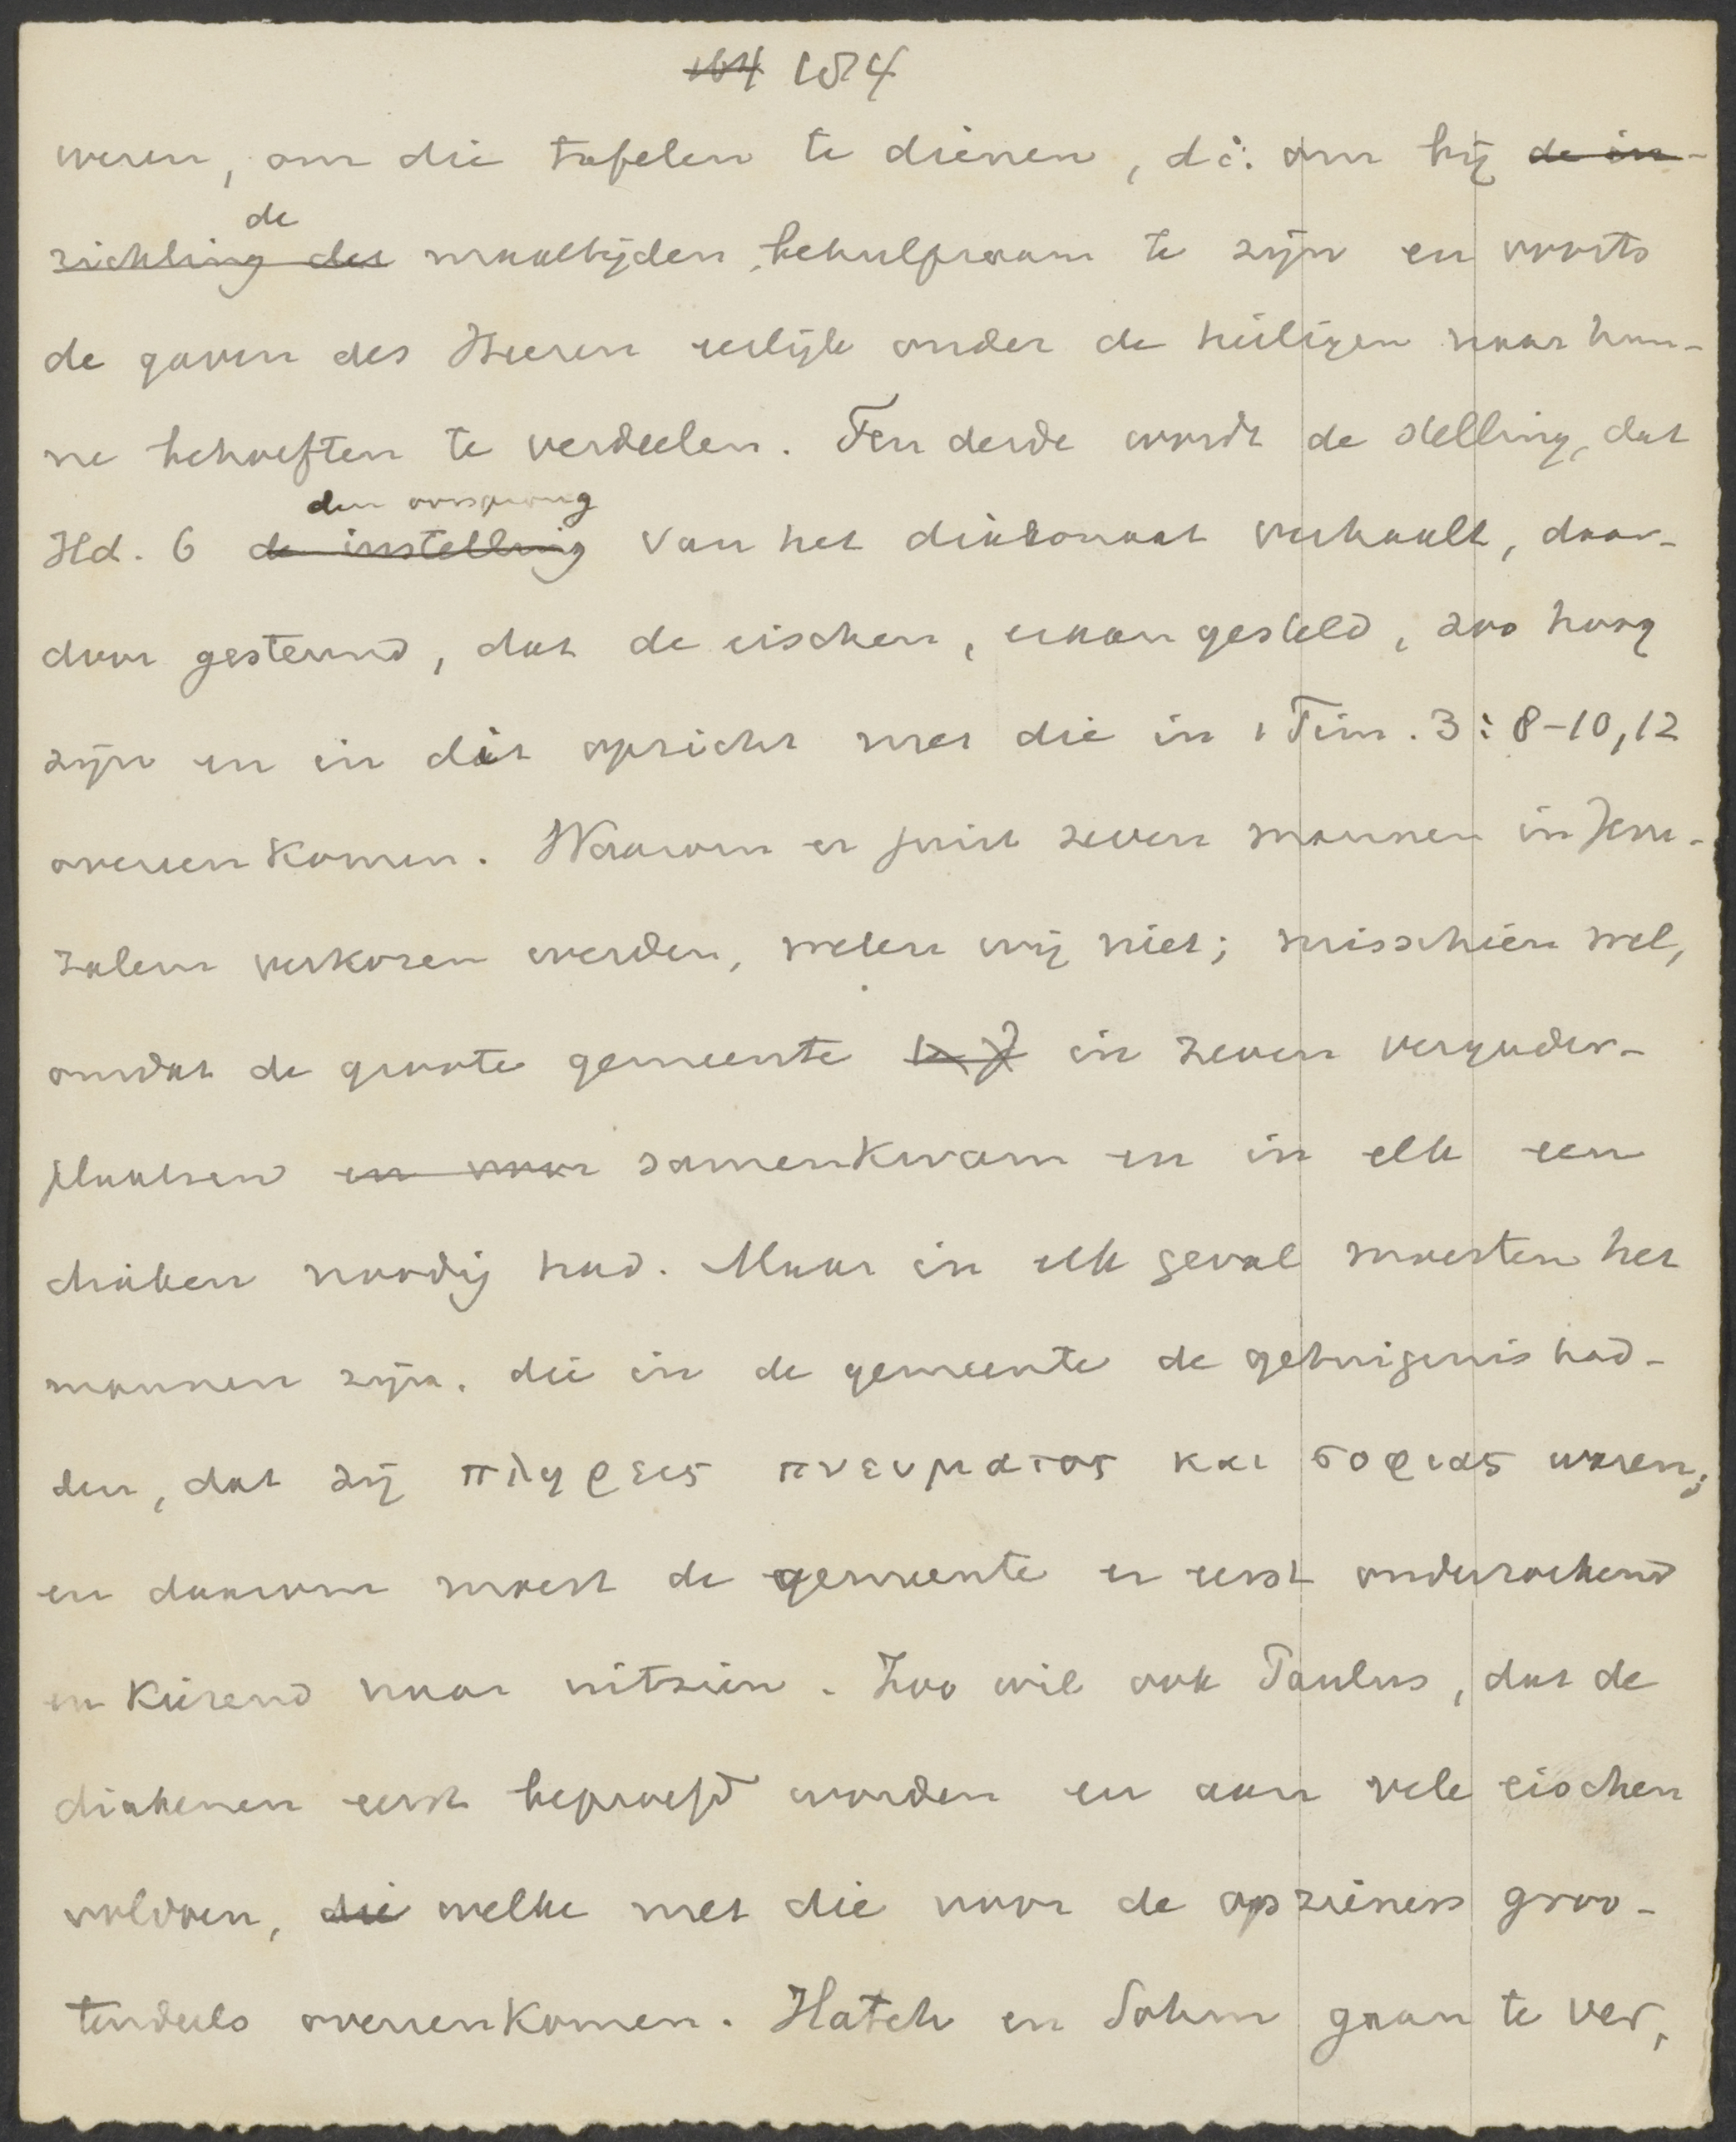 184
wezen, om die tafelen te dienen, d.i. om bij de in-
de
richting der maaltijden behulpzaam te zijn en voorts
de gaven des Heeren eerlijk onder de heiligen naar hun-
ne behoeften te verdeelen. Ten derde wordt de stelling, dat
den oorsprong
Hd. 6 de instelling van het diakonaat verhaalt, daar-
door gesteund, dat de eischen, eraan gesteld, zoo hoog
zijn en in dit opzicht met die in 1 Tim. 3:8-10,12
overeenkomen. Waarom er juist zeven mannen in Jeru-
zalem verkozen werden, weten wij niet; misschien wel,
omdat de groote gemeente in zeven vergader-
plaatsen en voor samenkwam en in elk een
diaken noodig had. Maar in elk geval moesten het
mannen zijn, die in de gemeente de getuigenis had-
den, dat zij πληρεις πνευματος και σοφιας waren;
en daarom moest de gemeente er eerst onderzoekend
en kiezend naar uitzien. Zoo wil ook Paulus, dat de
diakenen eerst beproefd worden en aan vele eischen
voldoen, die welke met die voor de opzieners groo-
tendeels overeenkomen. Hatch en Sohm gaan te ver,